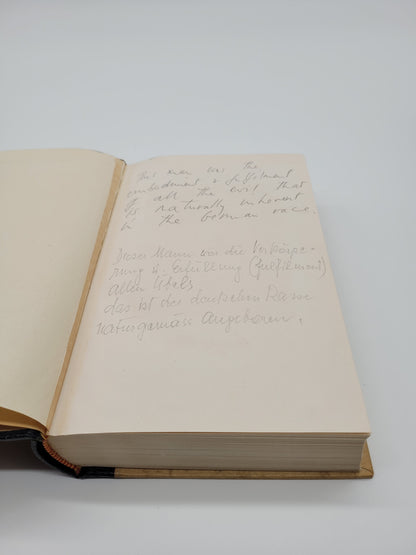 This man was the
embodiment & fulfilment
of all the evil that
is naturally inherent
in the German race.
Dieser Mann war die Verkörpe-
rung u. Erfüllung (fulfilment)
allen Übels
das ist der deutschen Rasse
naturgemäss angeboren.